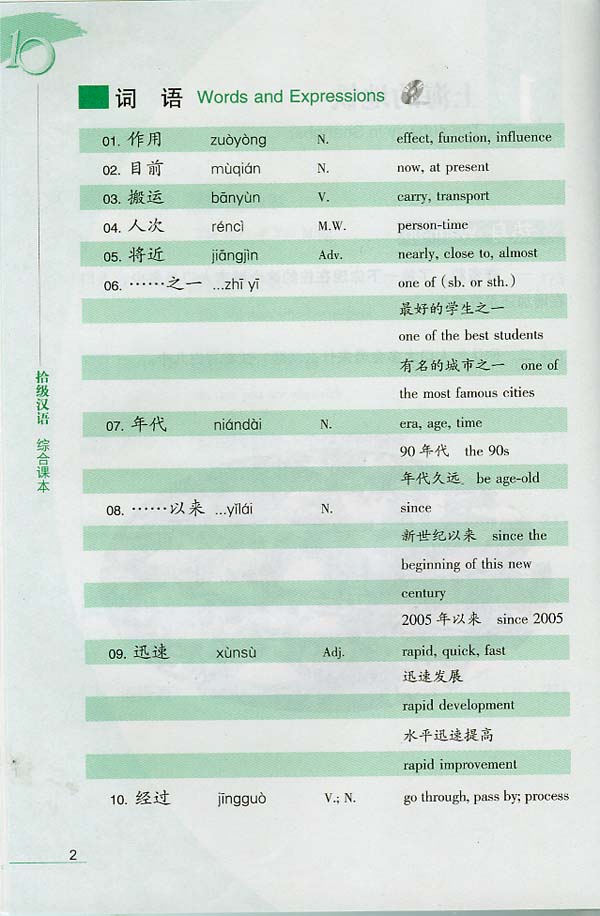 10
词 语 Words and Expressions
01. 作用 zuòyòng N. effect, function, influence
02. 目前 mùqián N. now, at present
03. 搬运 bānyùn V. carry, transport
04. 人次 réncì M.W. person-time
05. 将近 jiāngjìn Adv. nearly, close to, almost
06. ……之一 ...zhī yī one of (sb. or sth.)
最好的学生之一
one of the best students
有名的城市之一 one of
the most famous cities
07. 年代 niándài N. era, age, time
90 年代 the 90s
年代久远 be age-old
08. ……以来 ...yǐlái N. since
新世纪以来 since the
beginning of this new
century
2005 年以来 since 2005
09. 迅速 xùnsù Adj. rapid, quick, fast
迅速发展
rapid development
水平迅速提高
rapid improvement
10. 经过 jīngguò V.; N. go through, pass by; process
拾级汉语 综合课本
2